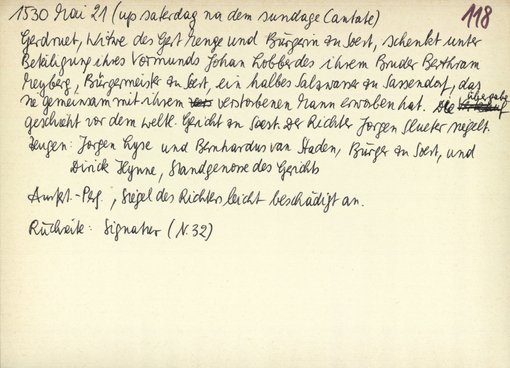 118
1530 Mai 21 (up saterdag na dem sundage Cantate)
Gerdruet, Witwe des Gert Menge und Bürgerin zu Soest, schenkt unter
Betätigung ihres Vormunds Johan Lobber des ihrem Bruder Berthram
Meyberg, Bürgermeister zu Soest, ein halbes Salzwasser zu Sassendorf, das
sie gemeinsam mit ihrem verstorbenen Mann erworben hat. Die Übergabe
geschieht vor dem weltl. Gericht zu Soest. Der Richter Jorgen Slueter siegelt.
Zeugen: Jorgen Kyse und Bernhardus van Staden, Bürger zu Soest, und
Dirick Hynne, Standgenosse des Gerichts
Ausf.-Perg., Siegel des Richters leicht beschädigt an.
Rückseite: Signatur (N. 32)